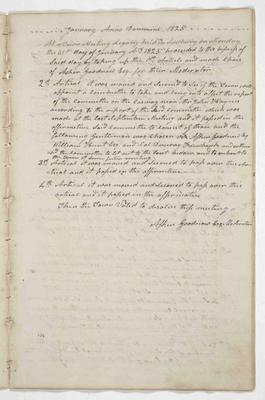 January Anno Domini 1825
At a Town Meeting legally held in on Monday
the 31st day of January A.D. 1825 proceeded to the business of
said day by taking up the 1st Article and made choice
of Asher Goodnow Esq for their Moderator
2d Articel it was moved and seconed to see if the Town will
appoint a committee to take and carry into effect the report
of the committee on the causway near the John Haynes
according to the report of the said committee which was
made at the last September Meeting and it passed in the
affirmative said committee to consist of three and the
following Gentlemen was chosen viz Asher Goodnow Esq
William Hunt Esq and Col and
the committee to let out to the lowest bidder and to
the Town at some future meeting
3d Articel it was moved and seconed to pass over this
articel and it passed in the affirmative
4th Articel it was moved and seconed to pass over this
articel and it passed in the affirmative
Then the Town Voted to desolve this meeting
Asher Goodnow Esq Moderator